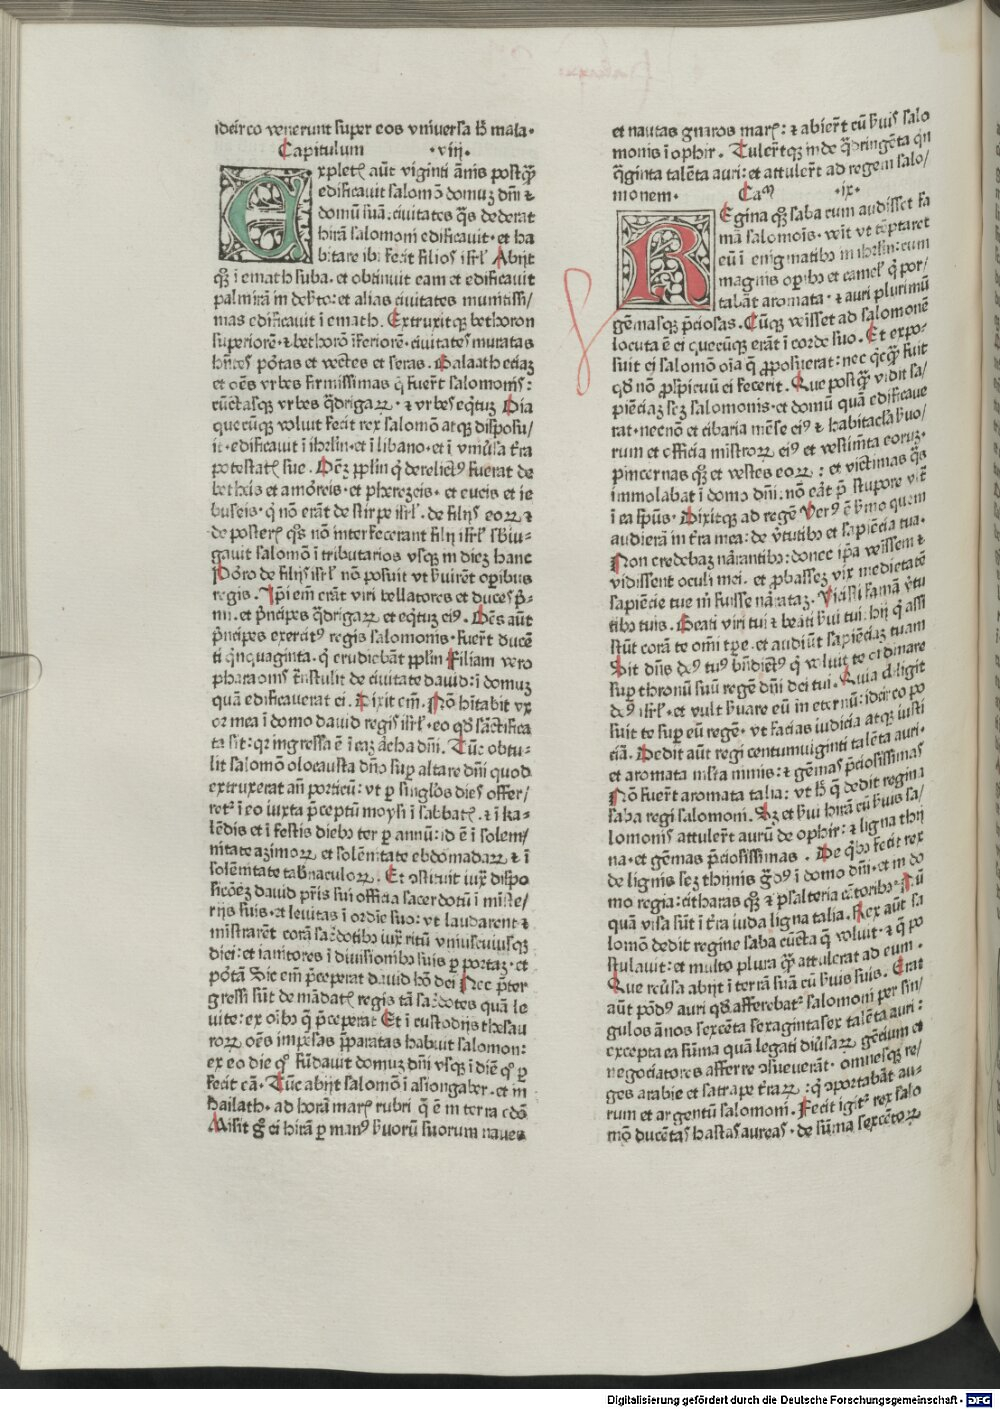 idcirco venerunt super eos vniversa hˀ mala·
Capitulum ·viij·
Expletˀ aūt viginti ānis postq̄ꝫ
edificauit salomō domuꝫ dn̄i ⁊
domū suā. ciuitates q̄s dederat
hirā salomoni edificauit· et ha
bitare ibi fecit filios isrˀl. Abijt
qꝫ ī emath suba. et obtinuit eam et edificauit
palmirā in deserto: et alias ciuitates munitissi/
mas edificauit ī emath. Extruxitqꝫ bethoron
superiorē· ⁊ bethorō īferiorē· ciuitates muratas
hn̄tes portas et vectes et seras. Balaath etiaꝫ
et oēs vrbes firmissimas q̄ fuerūt salomonis:
cūctasqꝫ vrbes q̄drigaꝝ· ⁊ vrbes eqˀtuꝫ Oīa
quecūqꝫ voluit fecit rex salomō atqꝫ disposu/
it· edificauit ī ihrˀlm· et ī libano· et ī vniūsa tˀra
potestatis sue. Oēꝫ pplm̄ q̄ derelictꝰ fuerat de
betheis et amorreis· et pherezeis· et eueis et ie
buseis· q̄ nō erāt de stirpe isrˀl· de filijs eoꝝ ⁊
de posterˀ q̄s nō interfecerant filij isrˀl sbiu-
gauit salomō ī tributarios vsqꝫ in dieꝫ hanc
Porro de filijs isrˀl nō posuit vt hˀuirēt operibus
regis. Ipi em̄ erāt viri bellatores et duces pˀ-
mi. et pˀncipes q̄drigaꝝ et eqˀtuꝫ eiꝰ. Oēs aūt
pˀncipes exercitꝰ regis salomonis· fuerūt ducē
ti qˀnquaginta· q̄ erudiebāt pplm̄ Filiam vero
pharaonis trāstulit de ciuitate dauid: ī domuꝫ
quā edificauerat ei. Dixit em̄. Nō hˀitabit vx
or mea ī domo dauid regis isrˀl· eo qd̄ sāctifica
ta sit: qr ingressa ē ī eaꝫ archa dn̄i. Tūc obtu-
lit salomō olocausta dn̄o sup altare dn̄i quod
extruxerat an̄ porticū: vt p singulos dies offer/
retˀ ī eo iuxta p̄ceptū moysi ī sabbatˀ· ⁊ ī ka-
lēdis et ī festis diebꝰ ter p annū: id ē ī solem/
nitate azimoꝝ et solēnitate ebdomadaꝝ ⁊ ī
solēnitate tabˀnaculoꝝ. Et ɔstituit iuxˀ dispo
sicōeꝫ dauid pr̄is sui officia sacerdotū ī miste/
rijs suis· et leuitas ī ordie suo: vt laudarent ⁊
mistrarēt corā sacˀdotibꝰ iuxˀ ritū vniuscuiusqꝫ
diei: et ianitores ī diuisionibꝰ suis p portaꝫ· et
portā Sic em̄ p̄ceperat dauid hō dei Nec p̄ter
gressi sūt de mādatˀ regis tā sacˀdotes quā le
uite: ex oībꝰ q̄ p̄ceperat Et ī custodijs thesau
roꝝ oēs impēsas p̄paratas habuit salomon:
ex eo die qˀ fūdauit domuꝫ dn̄i vsqꝫ ī diē qˀ p
fecit eā. Tūc abijt salomō ī asiongaber· et in
hailath· ad horā marˀ rubri q̄ ē in terra edō
Misit g̊ ei hirā p manꝰ hˀuorū suorum naues
et nautas gnaros marˀ: ⁊ abierūt cū hˀuis salo
monis ī ophir. Tulerūtqꝫ inde q̄dringēta qˀn
q̄ginta talēta auri: et attulerūt ad regem salo/
monem. Cam ·ix·
REgina qꝫ saba cum audisset fa
mā salomois· veit vt tēptaret
eū ī enigmatibꝰ in ihrˀlm: cum
magnis opibꝰ et camelˀ q̄ por/
tabāt aromata· ⁊ auri plurimū
gēmasqꝫ p̄ciosas. Cūqꝫ veisset ad salomonē
locuta ē ei quecūqꝫ erāt ī corde suo. Et expo-
suit ei salomō oīa q̄ p̄posuerat: nec qˀcqˀ fuit
qd̄ nō pspicuū ei fecerit. Que postq̄ꝫ vidit sa/
piēciaꝫ scꝫ salomonis· et domū quā edificaue
rat· necnō et cibaria mēse eiꝰ ⁊ habitacˀla hˀuo/
rum et officia mistroꝝ eiꝰ et vestimēta eoruꝫ·
pincernas qꝫ et vestes eoꝝ: et victimas q̄s
immolabat ī domo dn̄i: nō erat p̄ stupore vltˀ
ī ea spūs· Dixitqꝫ ad regē Verꝰ ē hˀmo quem
audierā in tˀra mea: de vˀtutibꝰ et sapiēcia tua·
Non credebaꝫ narrantibꝰ: donec ipa veissem ⁊
vidissent oculi mei· et pbasseꝫ vix medietatē
sapiēcie tue mˀ fuisse narrataꝫ. Vicisti famā vˀtu
tibꝰ tuis. Beati viri tui ⁊ beati hˀui tui: hij q̄ assi
stūt corā te omī tpe· et audiūt sapiēciaꝫ tuam
Sit dn̄s deꝰ tuꝰ bn̄dictꝰ q̄ voluit te ordinare
sup thronū suū regē dn̄i dei tui. Quia diligit
deꝰ isrˀl· et vult hˀuare eū in eternū: idcirco po
suit te sup eū regē· vt facias iudicia atqꝫ iusti
ciā. Dedit aūt regi centumuiginti talēta auri·
et aromata mlta nimis: ⁊ gēmas p̄ciosissimas
Nō fuerūt aromata talia: vt hˀ q̄ dedit regina
saba regi salomoni. Sꝫ et hˀui hirā cū hˀuis sa/
lomonis attulerūt aurū de ophir: ⁊ ligna thij
na· et gēmas p̄ciosissimas. De qˀbꝰ fecit rex
de lignis scꝫ thijnis g̊dꝰ ī domo dn̄i· et in do
mo regia: citharas qꝫ ⁊ psalteria cātoribꝰ Nū
quā visa sūt ī tˀra iuda ligna talia. Rex aūt sa
lomō dedit regine saba cūcta q̄ voluit· ⁊ q̄ po
stulauit: et multo plura q̄ꝫ attulerat ad eum·
Que reuˀsa abijt ī terrā suā cū hˀuis suis. Erat
aūt pōdꝰ auri qd̄ afferebatˀ salomoni per sin/
gulos ānos sexcēta sexagintasex talēta auri:
excepta ea sūma quā legati diuˀsaꝝ gētium et
negociatores afferre ɔsueuerāt· omnesqꝫ re/
ges arabie et satrape tˀraꝝ: q̄ ɔportabāt au-
rum et argentū salomoni. Fecit igitˀ rex salo
mō ducētas hastas aureas· de sūma sexcētoꝝ
Digitalisierung gefördert durch die Deutsche Forschungsgemeinschaft - DFG